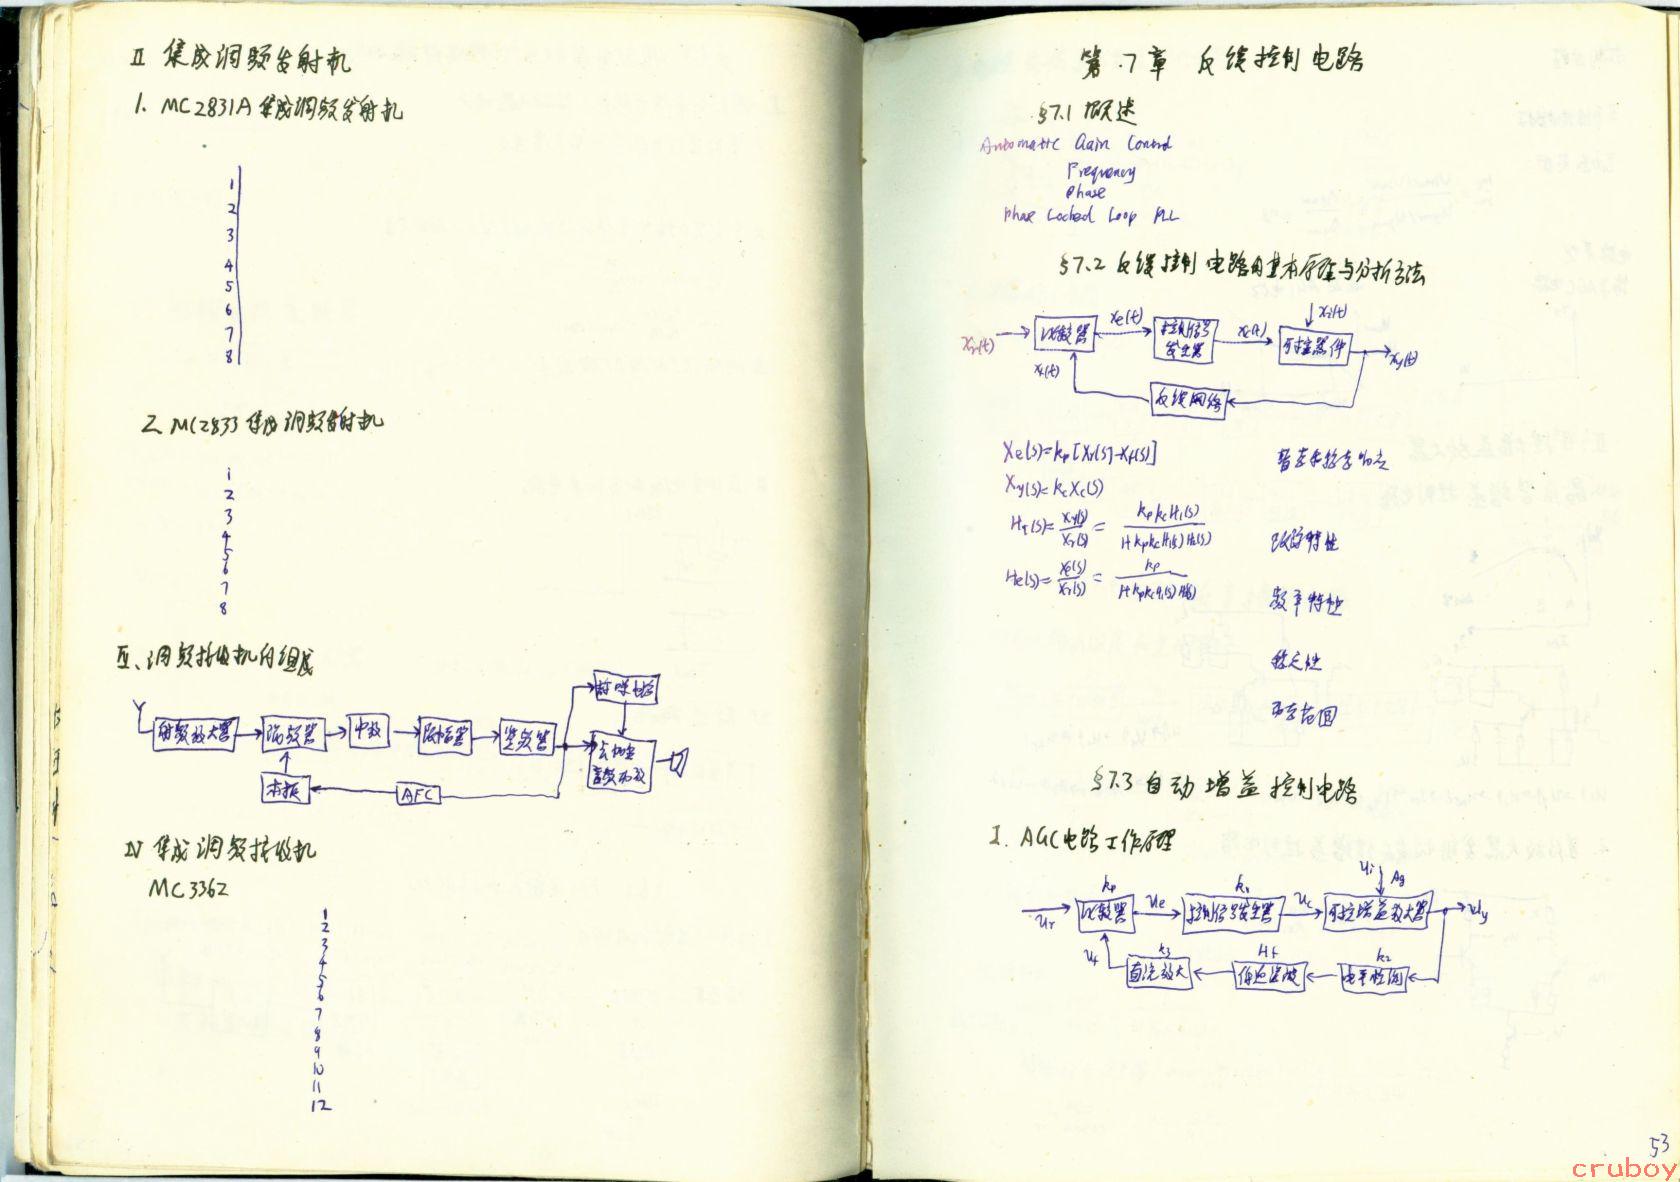 Ⅱ 集成调频发射机
1. MC2831A 集成调频发射机
1
2
3
4
5
6
7
8
2. MC2833 集成调频发射机
1
2
3
4
5
6
7
8
Ⅲ、调频接收机的组成
静噪电路
射频放大器 混频器 中放 限幅器 鉴频器
去加重
音频功放
本振 AFC
Ⅳ 集成调频接收机
MC3362
1
2
3
4
5
6
7
8
9
10
11
12
第.7章 反馈控制电路
§7.1 概述
Automatic Gain Control
Frequency
Phase
Phase Locked Loop PLL
§7.2 反馈控制电路的基本原理与分析方法
Xr(t) 比较器 Xe(t) 控制信号发生器 Xc(t) 可控器件 Xi(t) Xy(t)
Xf(t) 反馈网络
Xe(s)=kp[Xr(s)-Xf(s)] 暂态和稳态响应
Xy(s)=kcXc(s)
HT(s)=Xy(s)/Xr(s)=kpkcH1(s)/1+kpkcH1(s)H2(s) 跟踪特性
He(s)=Xe(s)/Xr(s)=kp/1+kpkcH1(s)H2(s) 频率特性
稳定性
动态范围
§7.3 自动增益控制电路
Ⅰ. AGC电路工作原理
ui Ag
kp k1
ur 比较器 ue 控制信号发生器 uc 可控增益放大器 uy
uf k3 Hf k2
直流放大 低通滤波 电平检测
53
cruboy